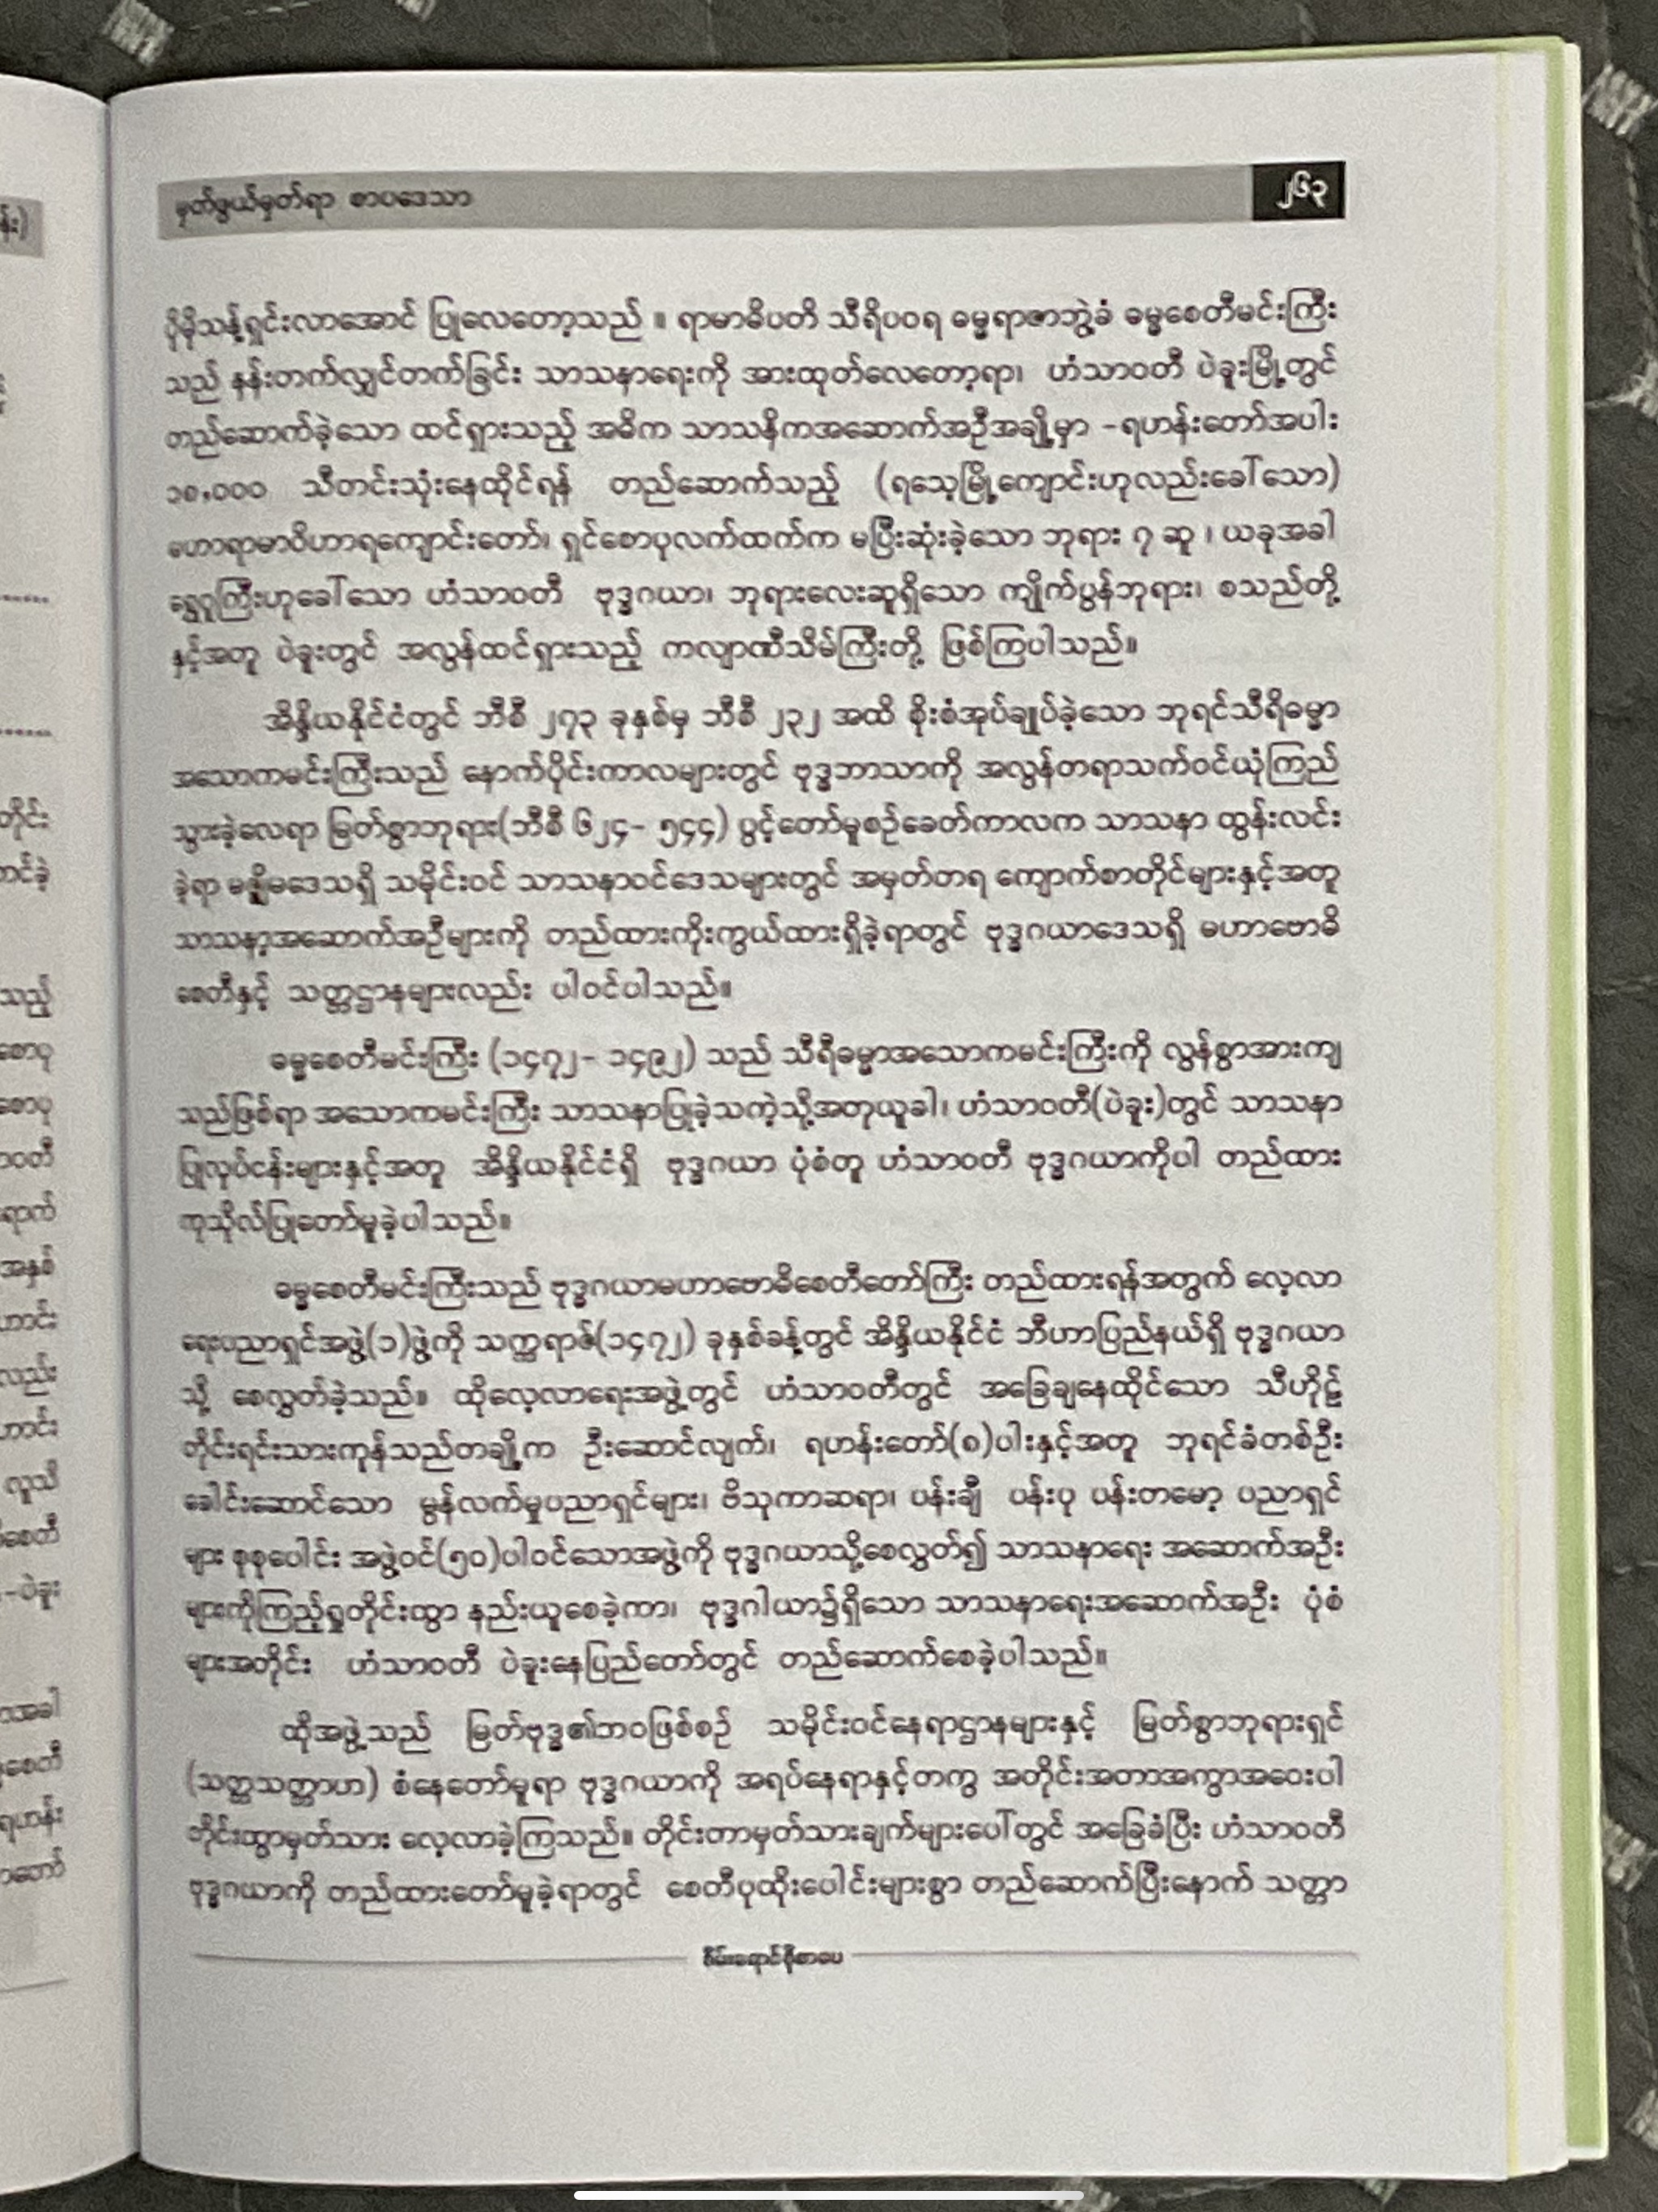 မှတ်ဖွယ်မှတ်ရာ စာပဒေသာ ၂၆၃
ပိုမိုသန့်ရှင်းလာအောင် ပြုလေတော့သည် ။ ရာမာဓိပတိ သီရိပဝရ ဓမ္မရာဇာဘွဲ့ခံ ဓမ္မစေတီမင်းကြီး
သည် နန်းတက်လျှင်တက်ခြင်း သာသနာရေးကို အားထုတ်လေတော့ရာ၊ ဟံသာဝတီ ပဲခူးမြို့တွင်
တည်ဆောက်ခဲ့သော ထင်ရှားသည့် အဓိက သာသနိကအဆောက်အဦအချို့မှာ -ရဟန်းတော်အပါး
၁၈,၀၀၀ သီတင်းသုံးနေထိုင်ရန် တည်ဆောက်သည့် (ရသေ့မြို့ကျောင်းဟုလည်းခေါ်သော)
မဟာရာမာဝိဟာရကျောင်းတော်၊ ရှင်စောပုလက်ထက်က မပြီးဆုံးခဲ့သော ဘုရား ၇ ဆူ ၊ ယခုအခါ
ရွှေဂူကြီးဟုခေါ်သော ဟံသာဝတီ ဗုဒ္ဓဂယာ၊ ဘုရားလေးဆူရှိသော ကျိုက်ပွန်ဘုရား၊ စသည်တို့
နှင့်အတူ ပဲခူးတွင် အလွန်ထင်ရှားသည့် ကလျာဏီသိမ်ကြီးတို့ ဖြစ်ကြပါသည်။
အိန္ဒိယနိုင်ငံတွင် ဘီစီ ၂၇၃ ခုနှစ်မှ ဘီစီ ၂၃၂ အထိ စိုးစံအုပ်ချုပ်ခဲ့သော ဘုရင်သီရိဓမ္မာ
အသောကမင်းကြီးသည် နောက်ပိုင်းကာလများတွင် ဗုဒ္ဓဘာသာကို အလွန်တရာသက်ဝင်ယုံကြည်
သွားခဲ့လေရာ မြတ်စွာဘုရား(ဘီစီ ၆၂၄- ၅၄၄) ပွင့်တော်မူစဉ်ခေတ်ကာလက သာသနာ ထွန်းလင်း
ခဲ့ရာ မဇ္ဈိမဒေသရှိ သမိုင်းဝင် သာသနာဝင်ဒေသများတွင် အမှတ်တရ ကျောက်စာတိုင်များနှင့်အတူ
သာသနာ့အဆောက်အဦများကို တည်ထားကိုးကွယ်ထားရှိခဲ့ရာတွင် ဗုဒ္ဓဂယာဒေသရှိ မဟာဗောဓိ
စေတီနှင့် သတ္တဋ္ဌာနများလည်း ပါဝင်ပါသည်။
ဓမ္မစေတီမင်းကြီး (၁၄၇၂- ၁၄၉၂) သည် သီရိဓမ္မာအသောကမင်းကြီးကို လွန်စွာအားကျ
သည်ဖြစ်ရာ အသောကမင်းကြီး သာသနာပြုခဲ့သကဲ့သို့အတုယူခါ၊ ဟံသာဝတီ(ပဲခူး)တွင် သာသနာ
ပြုလုပ်ငန်းများနှင့်အတူ အိန္ဒိယနိုင်ငံရှိ ဗုဒ္ဓဂယာ ပုံစံတူ ဟံသာဝတီ ဗုဒ္ဓဂယာကိုပါ တည်ထား
ကုသိုလ်ပြုတော်မူခဲ့ပါသည်။
ဓမ္မစေတီမင်းကြီးသည် ဗုဒ္ဓဂယာမဟာဗောဓိစေတီတော်ကြီး တည်ထားရန်အတွက် လေ့လာ
ရေးပညာရှင်အဖွဲ့(၁)ဖွဲ့ကို သက္ကရာဇ်(၁၄၇၂) ခုနှစ်ခန့်တွင် အိန္ဒိယနိုင်ငံ ဘီဟာပြည်နယ်ရှိ ဗုဒ္ဓဂယာ
သို့ စေလွှတ်ခဲ့သည်။ ထိုလေ့လာရေးအဖွဲ့တွင် ဟံသာဝတီတွင် အခြေချနေထိုင်သော သီဟိုဠ်
တိုင်းရင်းသားကုန်သည်တချို့က ဦးဆောင်လျက်၊ ရဟန်းတော်(၈)ပါးနှင့်အတူ ဘုရင်ခံတစ်ဦး
ခေါင်းဆောင်သော မွန်လက်မှုပညာရှင်များ၊ ဗိသုကာဆရာ၊ ပန်းချီ ပန်းပု ပန်းတမော့ ပညာရှင်
များ စုစုပေါင်း အဖွဲ့ဝင်(၅၀)ပါဝင်သောအဖွဲ့ကို ဗုဒ္ဓဂယာသို့စေလွှတ်၍ သာသနာရေး အဆောက်အဦး
များကိုကြည့်ရှုတိုင်းထွာ နည်းယူစေခဲ့ကာ၊ ဗုဒ္ဓဂါယာ၌ရှိသော သာသနာရေးအဆောက်အဦး ပုံစံ
များအတိုင်း ဟံသာဝတီ ပဲခူးနေပြည်တော်တွင် တည်ဆောက်စေခဲ့ပါသည်။
ထိုအဖွဲ့သည် မြတ်ဗုဒ္ဓ၏ဘဝဖြစ်စဉ် သမိုင်းဝင်နေရာဌာနများနှင့် မြတ်စွာဘုရားရှင်
(သတ္တသတ္တာဟ) စံနေတော်မူရာ ဗုဒ္ဓဂယာကို အရပ်နေရာနှင့်တကွ အတိုင်းအတာအကွာအဝေးပါ
တိုင်းထွာမှတ်သား လေ့လာခဲ့ကြသည်။ တိုင်းတာမှတ်သားချက်များပေါ်တွင် အခြေခံပြီး ဟံသာဝတီ
ဗုဒ္ဓဂယာကို တည်ထားတော်မူခဲ့ရာတွင် စေတီပုထိုးပေါင်းများစွာ တည်ဆောက်ပြီးနောက် သတ္တာ
စိမ်းရောင်စိုစာပေ